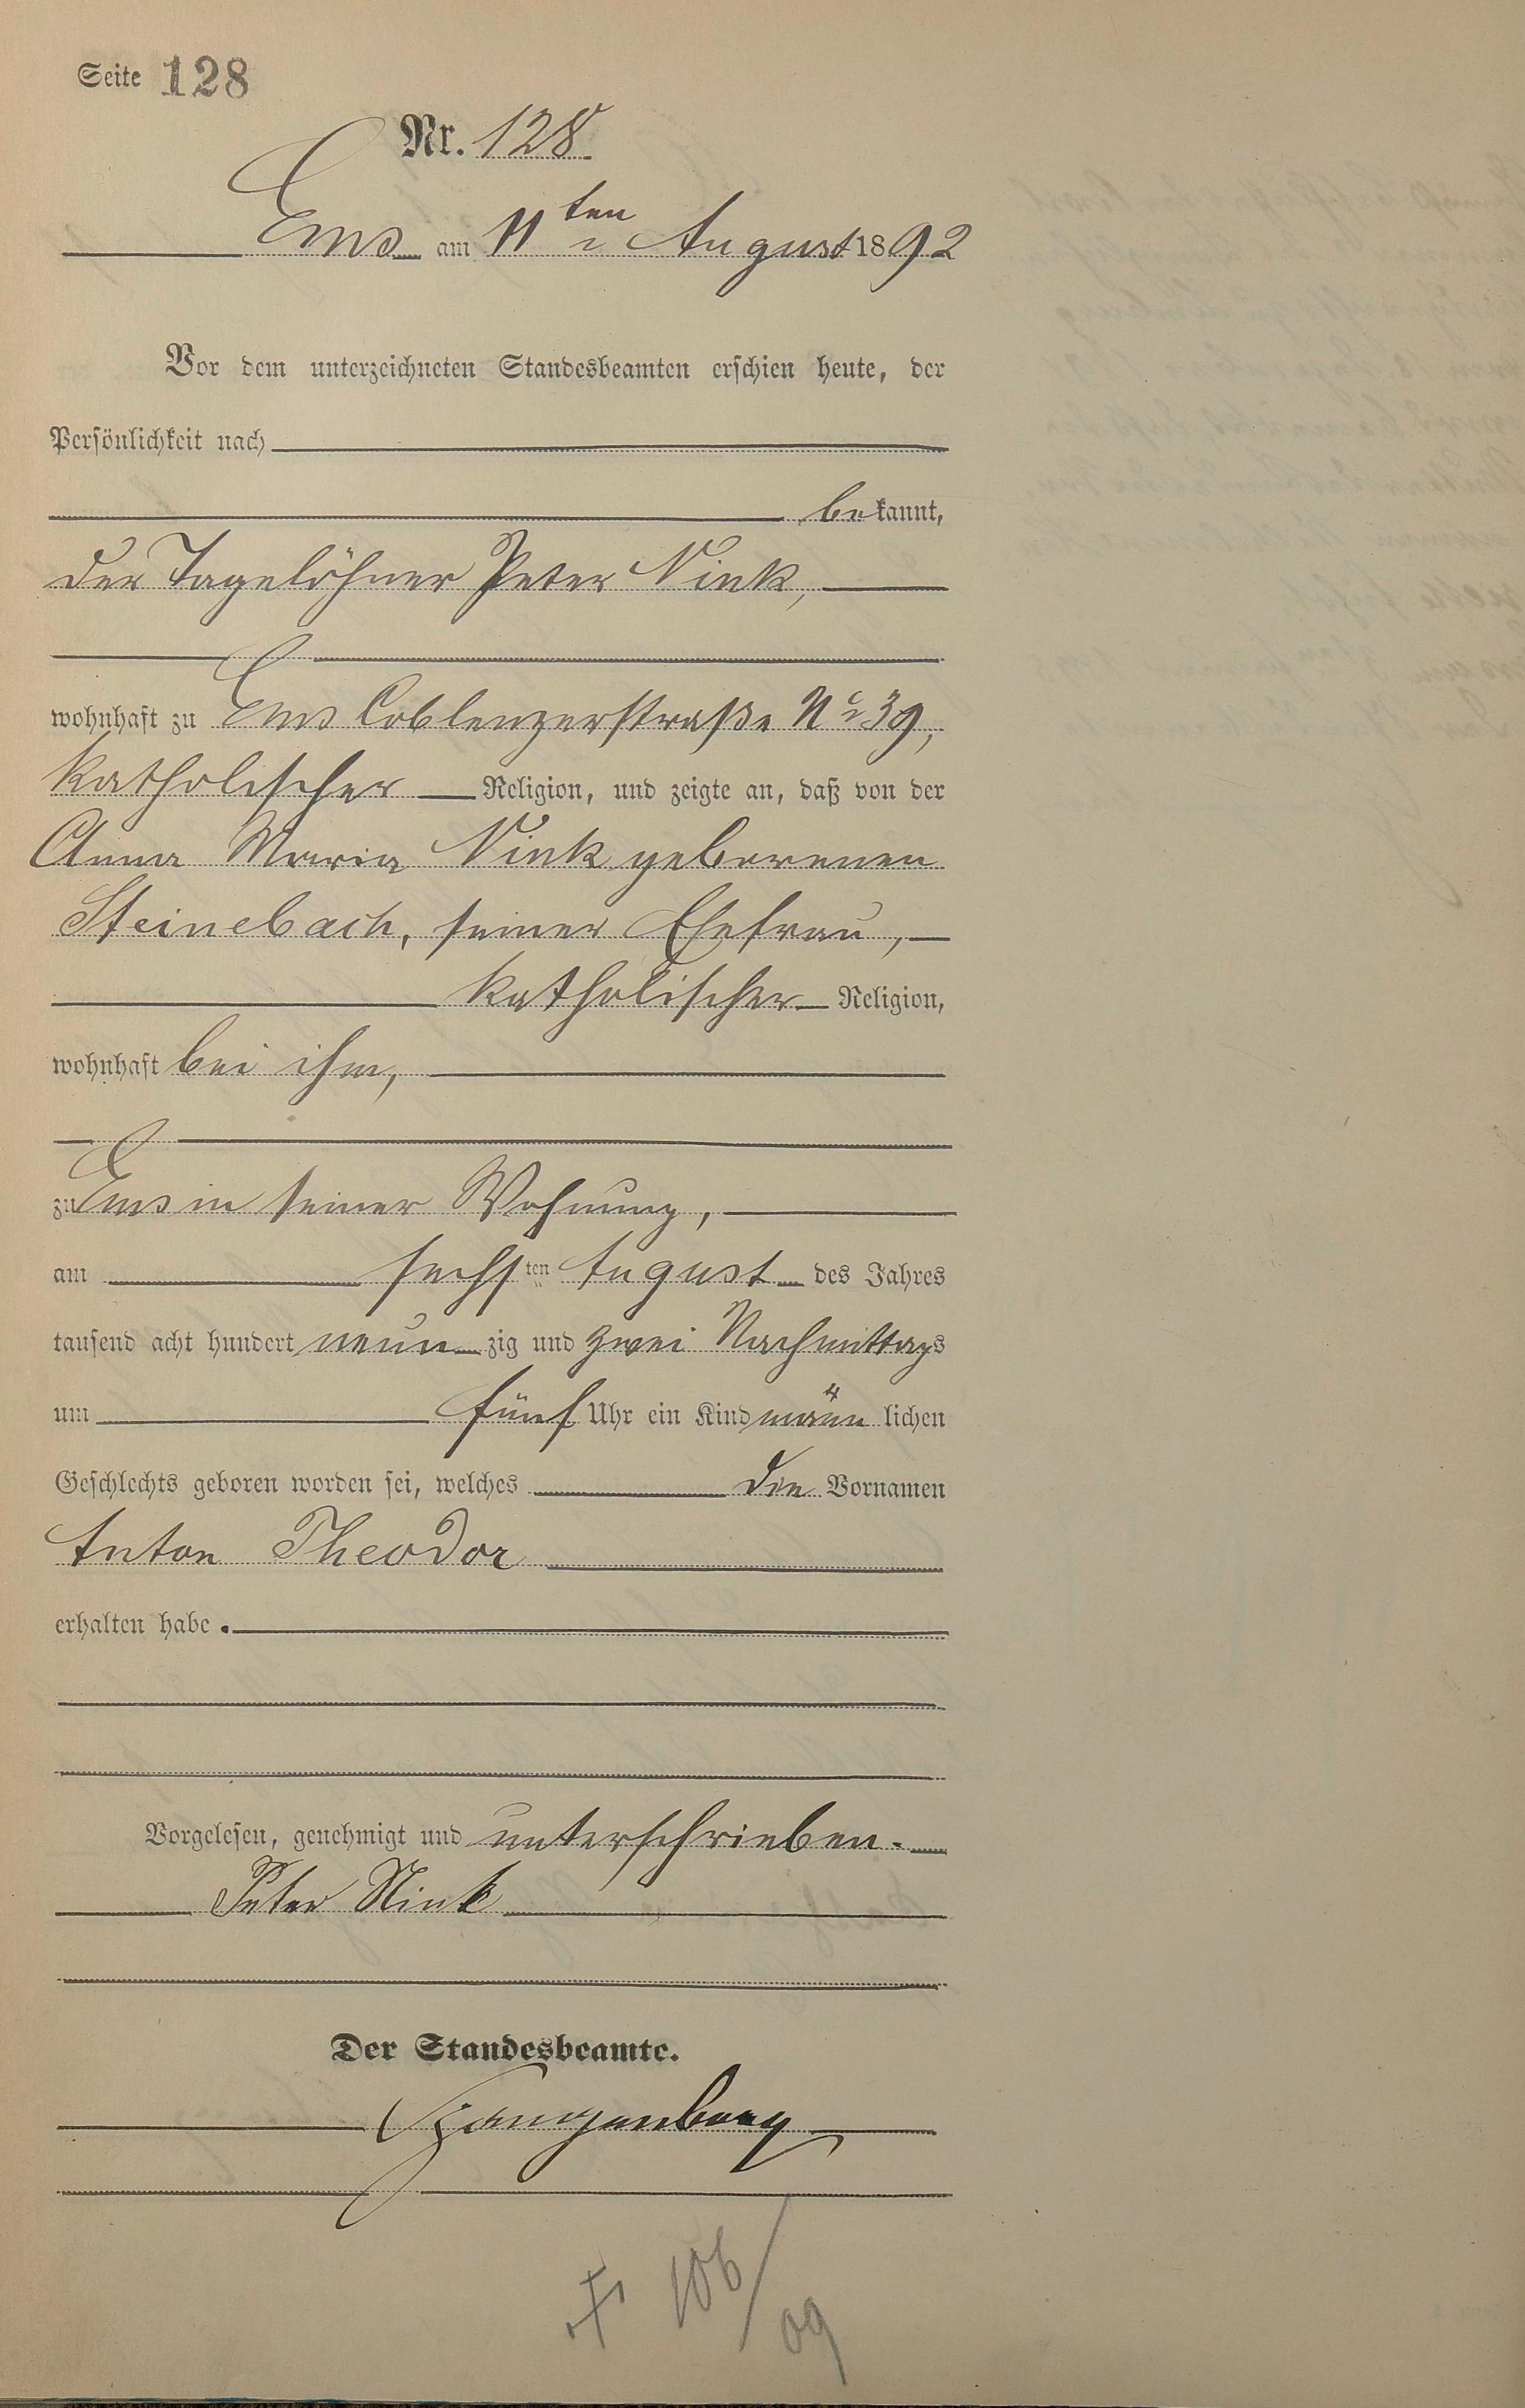 Seite 128
Nr. 128
Ems am 11ten August 1892
Vor dem unterzeichneten Standesbeamten erschien heute, der
Persönlichkeit nach
bekannt,
der Tagelöhner Peter Nink,
wohnhaft zu Ems Coblenzerstraße No 39,
katholischer Religion, und zeigte an, daß von der
Anna Maria Nink geborenen
Steinebach, seiner Ehefrau,
katholischer Religion,
wohnhaft bei ihm,
zu Ems in seiner Wohnung,
am sechsten August des Jahres
tausend acht hundert neunzig und zwei Nachmittags
um fünf Uhr ein Kind männlichen
Geschlechts geboren worden sei, welches die Vornamen
Anton Theodor
erhalten habe.
Vorgelesen, genehmigt und unterschrieben.
Peter Nink
Der Standesbeamte.
106/09